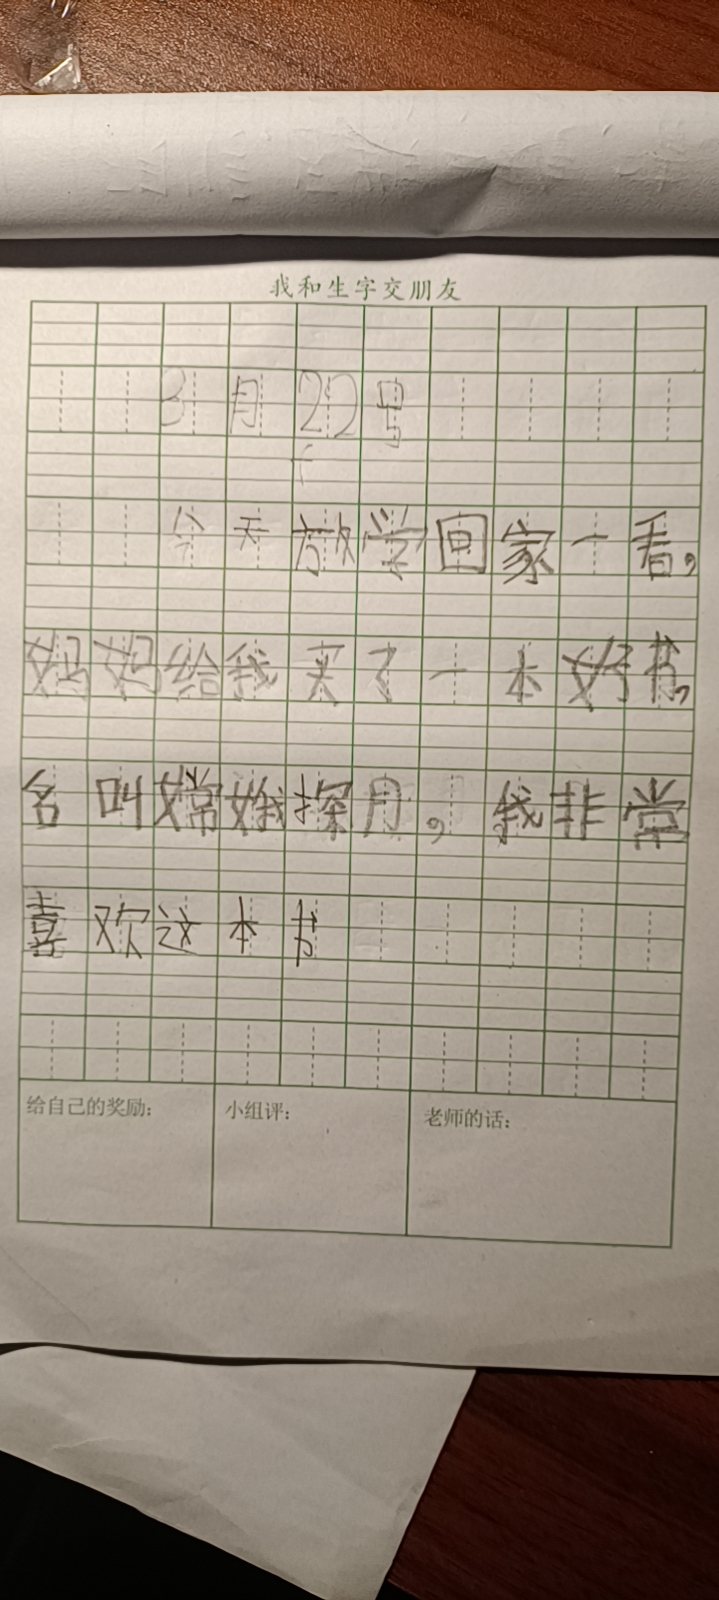 我和生字交朋友
3月22号
今天放学回家一看,
妈妈给我买了一本好书,
名叫嫦娥探月,我非常
喜欢这本书
给自己的奖励:
小组评:
老师的话: